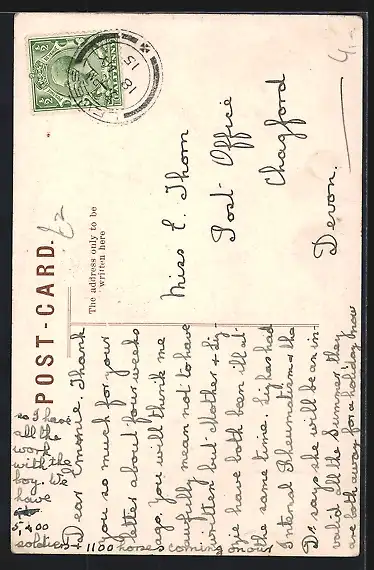 POST-CARD.
The address only to be
written here
Miss E. Thorn
Post-Office
Chagford
Devon.
Dear Emonie. Thank
you so much for your
letter about four weeks
ago. You will think me
awfully mean not to have
written but Mother + Liz-
zie have both been ill at-
the same time. Liz has had
Internal Rheumatism + the
Dr says she will be an in-
valid all the Summer, they
are both away for a holiday now
so I have
all the
work
with the
boy. We
have
5,400
soldiers + 1100 horses coming on our